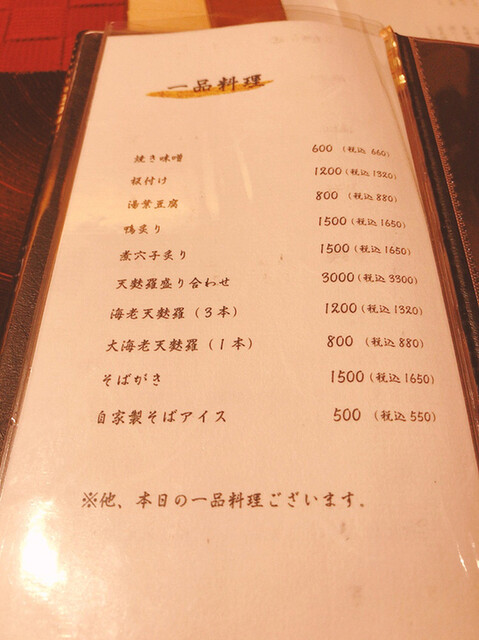 一品料理
焼き味噌 600（税込 660）
板付け 1200（税込 1320）
湯葉豆腐 800（税込 880）
鴨炙り 1500（税込 1650）
煮穴子炙り 1500（税込 1650）
天麩羅盛り合わせ 3000（税込 3300）
海老天麩羅（３本） 1200（税込 1320）
大海老天麩羅（１本） 800（税込 880）
そばがき 1500（税込 1650）
自家製そばアイス 500（税込 550）
※他、本日の一品料理ございます。